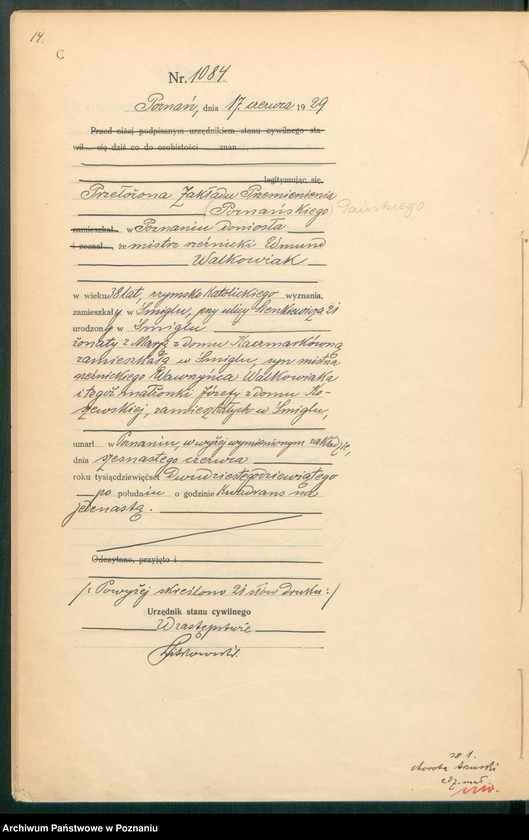 14.
C
Nr. 1084
Poznań, dnia 17 czerwca 1929
Przed niżej podpisanym urzędnikiem stanu cywilnego sta-
wił się dziś co do osobistości znan
legitymując się,
Przełożona Zakładu Przemienienia
(Poznańskiego) Pańskiego
zamieszkał w Poznaniu doniosła
i zeznał, że mistrz rzeźnicki Edmund
Walkowiak
w wieku 38 lat, rzymsko katolickiego wyznania,
zamieszkały w Śmiglu, przy ulicy Sienkiewicza 21
urodzony w Śmiglu
żonaty z Marją z domu Kaczmarkówną
zamieszkałą w Śmiglu, syn mistrza
rzeźnickiego Wawrzyńca Walkowiaka
i tegoż małżonki Józefy z domu
zamieszkałych w Śmiglu,
umarł w Poznaniu, w wyżej wymienionym zakładzie,
dnia szesnastego czerwca
roku tysiącdziewięćset dwudziestegodziewiątego
po południu o godzinie kwadrans na
jedenastą.
Odczytano, przyjęto i
/: Powyżej skreślono 21 słów druku :/
Urzędnik stanu cywilnego
W zastępstwie
38 l.
choroba